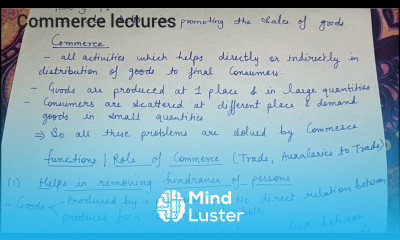 Commerce lectures
promoting the sales of goods
Commerce
- all activities which helps directly or indirectly in
distribution of goods to final consumers.
- Goods are produced at 1 place & in large quantities
- Consumers are scattered at different place & demand
goods in small quantities
⇒ So all these problems are solved by Commerce
functions | Role of Commerce (Trade, Auxalaries to Trade)
(1) Helps in removing hindrance of persons
- Goods Produced by No direct relation between
produced for both
Mind
Luster
between